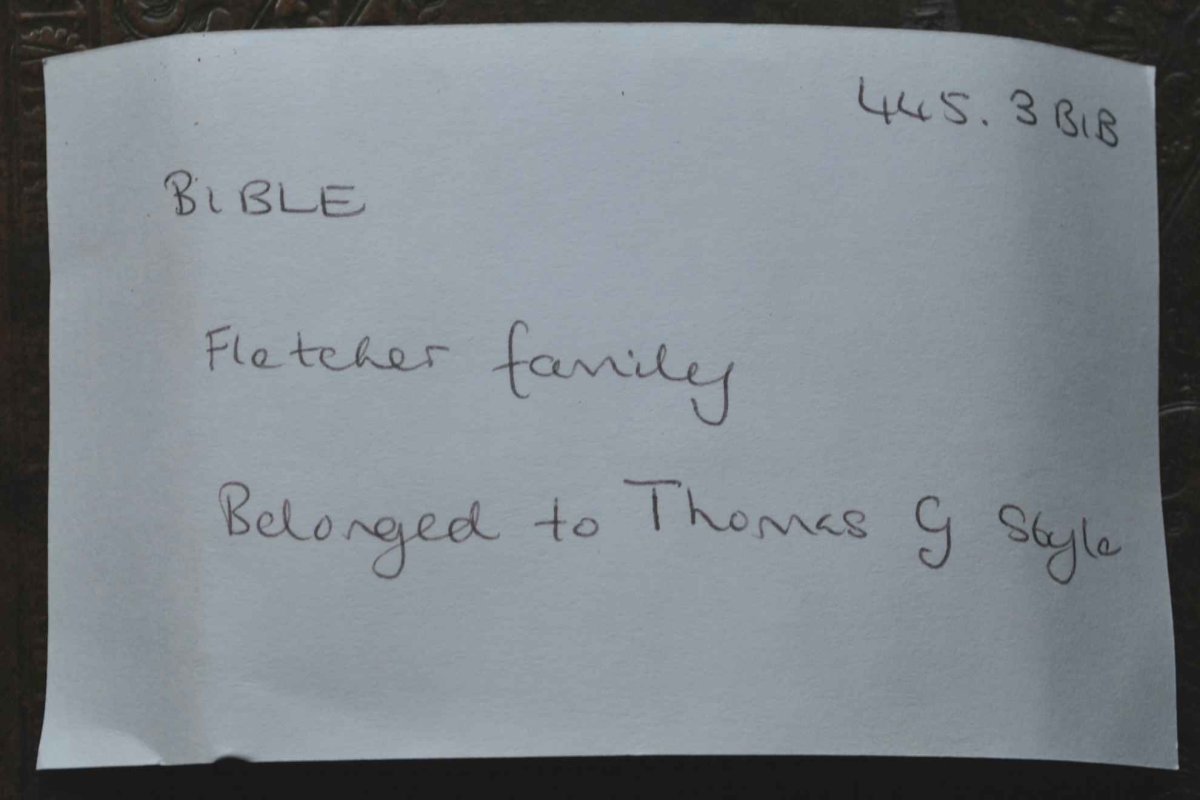 445.3 BIB
BIBLE
Fletcher family
Belonged to Thomas G Style